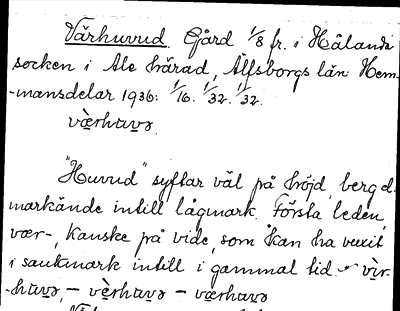 Vårhuvud. Gård 1/8 fr. i Hålanda
socken i Ale härad, Älfsborgs län Hem-
-mansdelar 1936: 1/16. 1/32. 1/32.
væ̀rhavə
"Huvud" syftar väl på höjd, berg el.
markände intill lågmark. Första leden,
vær-, kanske på vide, som kan ha vuxit
i sankmark intill i gammal tid. vìr-
-havə, – væ̀rhavə – værhavə